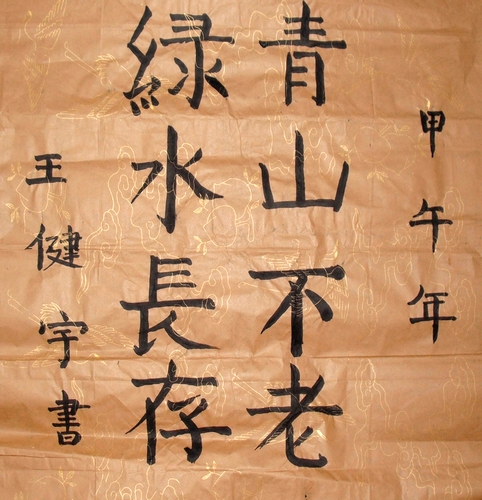 甲午年
青山不老
緑水長存
王健宇書